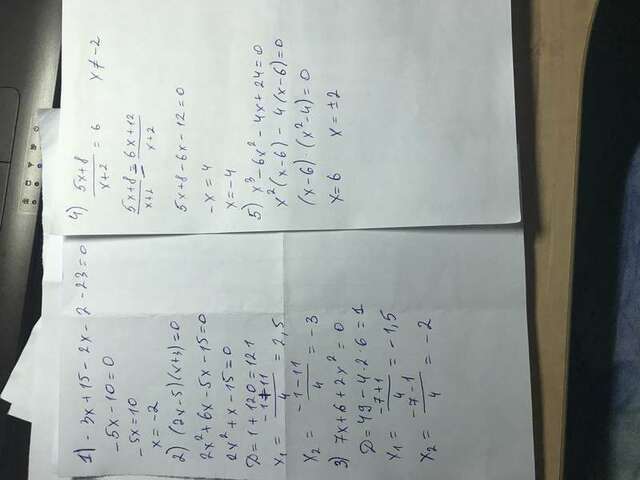 1) -3x+15-2x-2-23=0
-5x-10=0
-5x=10
x=-2
2) (2x-5)(x+3)=0
2x²+6x-5x-15=0
2x²+x-15=0
D=1+120=121
x₁ = (-1+11)/4 = 2,5
x₂ = (-1-11)/4 = -3
3) 7x+6+2x²=0
D=49-4·2·6=1
x₁ = (-7+1)/4 = -1,5
x₂ = (-7-1)/4 = -2
4) (5x+8)/(x+2) = 6 x≠-2
(5x+8)/(x+2) = (6x+12)/(x+2)
5x+8-6x-12=0
-x=4
x=-4
5) x³-6x²-4x+24=0
x²(x-6)-4(x-6)=0
(x-6)(x²-4)=0
x=6 x=±2